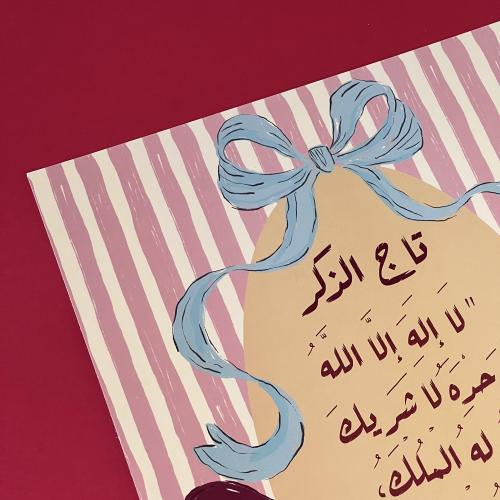 تاج الذكر
"لَا إِلَهَ إِلَّا اللَّهُ
حدَه لَا شَريكَ
لهُ الملْكُ،